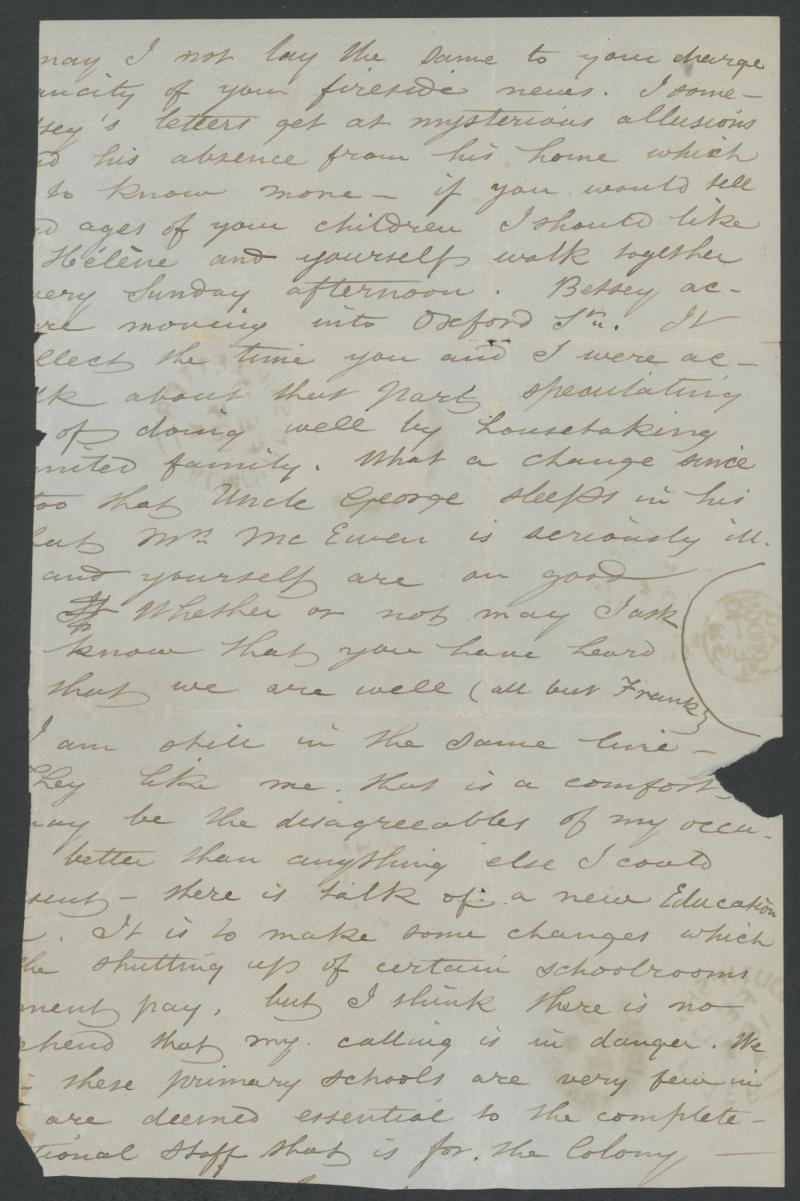 may I not lay the same to your charge
ucity of your fireside news. I some-
sey's letters get at mysterious allusions
nd his absence from his home which
to know more – if you would tell
d ages of your children I should like
Hélène and yourself walk together
very Sunday afternoon. Betsey ac-
re moving into Oxford It
llect the time you and I were ac-
lk about that part speculating
of doing well by housetaking
united family. What a change since
too that Uncle George sleeps in his
hat Mrs McEwen is seriously ill.
and yourself are on good
Whether or not may I ask
know that you have heard
that we are well (all but Frank)
I am still in the same
They like me. that is a comfort
may be the disagreeables of my occu-
better than anything else I could
sent – there is talk of a new Education
. It is to make some changes which
the shutting up of certain schoolrooms
ment pay, but I think there is no
ehend that my calling is in danger. We
these primary schools are very few in
are deemed essential to the complete-
tional staff that is for the Colony —